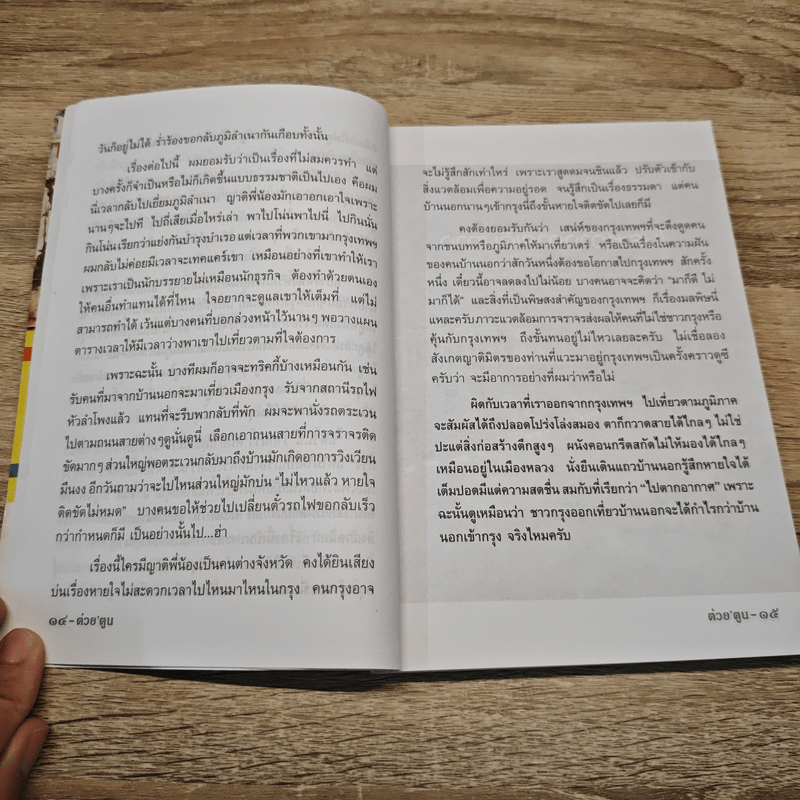 วันก็อยู่ไม่ได้ ร่ำร้องขอกลับภูมิลำเนากันเกือบทั้งนั้น
เรื่องต่อไปนี้ ผมยอมรับว่าเป็นเรื่องที่ไม่สมควรทำ แต่
บางครั้งก็จำเป็นหรือไม่ก็เกิดขึ้นแบบธรรมชาติเป็นไปเอง คือผม
นี่เวลากลับไปเยี่ยมภูมิลำเนา ญาติพี่น้องมักเอาอกเอาใจเพราะ
นานๆจะไปที ไปถี่เสียเมื่อไหร่เล่า พาไปโน่นพาไปนี่ ไปกินนั่น
กินโน่นเรียกว่าแย่งกันบำรุงบำเรอ แต่เวลาที่พวกเขามากรุงเทพฯ
ผมกลับไม่ค่อยมีเวลาจะเทคแคร์เขา เหมือนอย่างที่เขาทำให้เรา
เพราะเราเป็นนักบรรยายไม่เหมือนนักธุรกิจ ต้องทำด้วยตนเอง
ให้คนอื่นทำแทนได้ที่ไหน ใจอยากจะดูแลเขาให้เต็มที่ แต่ไม่
สามารถทำได้ เว้นแต่บางคนที่บอกล่วงหน้าไว้นานๆ พอวางแผน
ตารางเวลาให้มีเวลาว่างพาเขาไปเที่ยวตามที่ใจต้องการ
เพราะฉะนั้น บางทีผมก็อาจจะทริคกี้บ้างเหมือนกัน เช่น
รับคนที่มาจากบ้านนอกจะมาเที่ยวเมืองกรุง รับจากสถานีรถไฟ
หัวลำโพงแล้ว แทนที่จะรีบพากลับที่พัก ผมจะพานั่งรถตระเวน
ไปตามถนนสายต่างๆดูนั่นดูนี่ เลือกเอาถนนสายที่การจราจรติด
ขัดมากๆ ส่วนใหญ่พอตระเวนกลับมาถึงบ้านมักเกิดอาการวิงเวียน
มึนงง อีกวันถามว่าจะไปไหนส่วนใหญ่มักบ่น “ไม่ไหวแล้ว หายใจ
ติดขัดไปหมด” บางคนขอให้ช่วยไปเปลี่ยนตั๋วรถไฟขอกลับเร็ว
กว่ากำหนดก็มี เป็นอย่างนั้นไป...ฮ่า
เรื่องนี้ใครมีญาติพี่น้องเป็นคนต่างจังหวัด คงได้ยินเสียง
บ่นเรื่องหายใจไม่สะดวกเวลาไปไหนมาไหนในกรุง คนกรุงอาจ
๑๔ - ต่วย'ตูน
จะไม่รู้สึกสักเท่าไหร่ เพราะเราสูดดมจนชินแล้ว ปรับตัวเข้ากับ
สิ่งแวดล้อมเพื่อความอยู่รอด จนรู้สึกเป็นเรื่องธรรมดา แต่คน
บ้านนอกนานๆเข้ากรุงนี่ถึงขั้นหายใจติดขัดไปเลยก็มี
คงต้องยอมรับกันว่า เสน่ห์ของกรุงเทพฯที่จะดึงดูดคน
จากชนบทหรือภูมิภาคให้มาเที่ยวเตร่ หรือเป็นเรื่องในความฝัน
ของคนบ้านนอกว่าสักวันหนึ่งต้องขอโอกาสไปกรุงเทพฯ สักครั้ง
หนึ่ง เดี๋ยวนี้อาจลดลงไปไม่น้อย บางคนอาจจะคิดว่า “มาก็ดี ไม่
มาก็ได้” และสิ่งที่เป็นพิษสงสำคัญของกรุงเทพฯ ก็เรื่องมลพิษนี่
แหละครับภาวะแวดล้อมการจราจรส่งผลให้คนที่ไม่ใช่ชาวกรุงหรือ
คุ้นกับกรุงเทพฯ ถึงขั้นทนอยู่ไม่ไหวเลยละครับ ไม่เชื่อลอง
สังเกตญาติมิตรของท่านที่แวะมาอยู่กรุงเทพฯเป็นครั้งคราวดูซี
ครับว่า จะมีอาการอย่างที่ผมว่าหรือไม่
ผิดกับเวลาที่เราออกจากกรุงเทพฯ ไปเที่ยวตามภูมิภาค
จะสัมผัสได้ถึงปลอดโปร่งโล่งสมอง ตาก็กวาดสายได้ไกลๆ ไม่ใช่
ปะแต่สิ่งก่อสร้างตึกสูงๆ ผนังคอนกรีตสกัดไม่ให้มองได้ไกลๆ
เหมือนอยู่ในเมืองหลวง นั่งยืนเดินแถวบ้านนอกรู้สึกหายใจได้
เต็มปอดมีแต่ความสดชื่น สมกับที่เรียกว่า “ไปตากอากาศ” เพราะ
ฉะนั้นดูเหมือนว่า ชาวกรุงออกเที่ยวบ้านนอกจะได้กำไรกว่าบ้าน
นอกเข้ากรุง จริงไหมครับ
ต่วย'ตูน - ๑๕